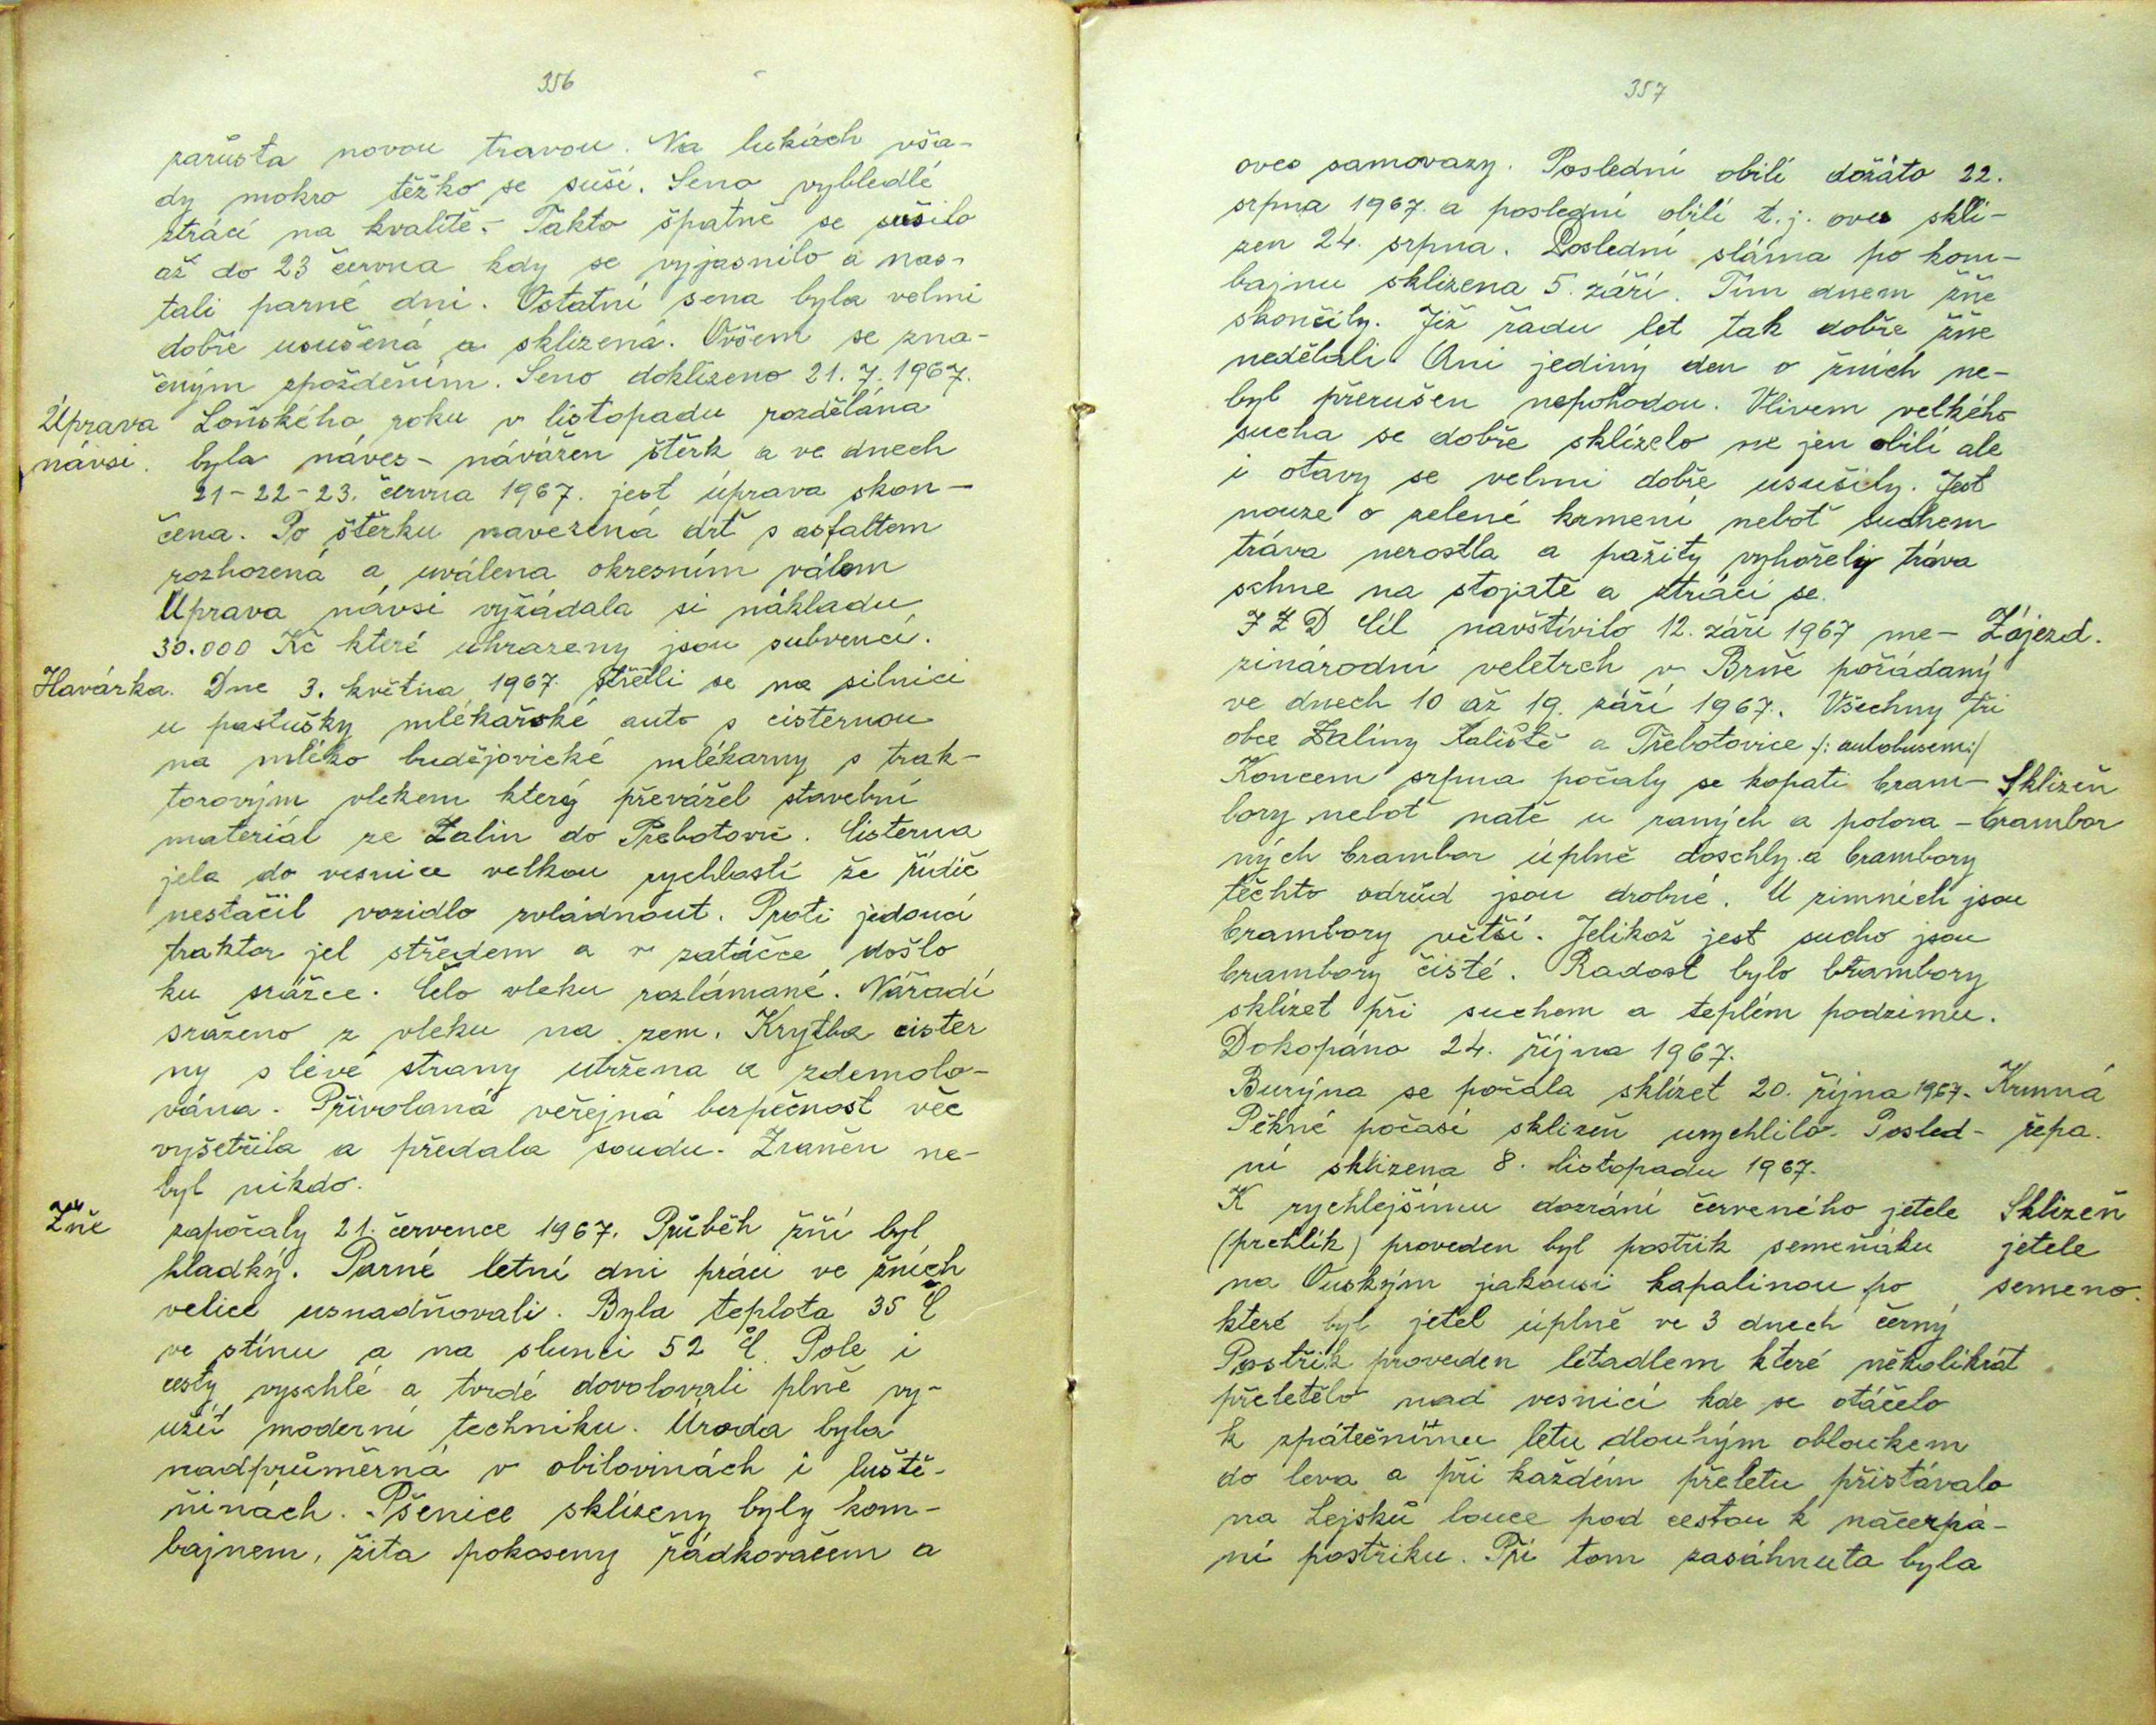 356
zarůsta novou travou. Na lukách vša-
dy mokro těžko se suší. Seno vybledlé
ztrácí na kvalitě. Takto špatně se sušilo
až do 23 června kdy se vyjasnilo a nas-
tali parné dni. Ostatní sena byla velmi
dobře usušená a sklizená. Ovšem se zna-
čným zpožděním. Seno doklizeno 21. 7. 1967.
Úprava návsi. Loňského roku v listopadu rozdělána
byla náves - návážen štěrk a ve dnech
21-22-23. června 1967. jest úprava skon-
čena. Po štěrku navezená drť s asfaltem
rozhozená a uválena okresním válem
Úprava návsi vyžádala si nákladu
30.000 Kč které uhrazeny jsou subvencí.
Havárka. Dne 3. května 1967. střetli se na silnici
u pastušky mlékařské auto s cisternou
na mléko budějovické mlékarny s trak-
torovým vlekem který převážel stavební
materiál ze Zalin do Třebotovic. Cisterna
jela do vesnice velkou rychlostí že řidič
nestačil vozidlo zvládnout. Proti jedoucí
traktor jel středem a v zatáčce došlo
ku srážce. Čelo vleku rozlámané. Nářadí
sraženo z vleku na zem. Krytba cister
ny s levé strany utržena a zdemolo-
vána. Přivolaná veřejná bezpečnost věc
vyšetřila a předala soudu. Zraněn ne-
byl nikdo.
Žně započaly 21. července 1967. Průběh žní byl
hladký. Parné letní dni práci ve žních
velice usnadňovali. Byla teplota 35 °C
ve stínu a na slunci 52 °C. Pole i
cesty vyschlé a tvrdé dovolovali plně vy-
užít moderní techniku. Úroda byla
nadprůměrná v obilovinách i luště-
ninách. Pšenice sklízeny byly kom-
bajnem, žita pokoseny řádkovačem a
357
oves samovazy. Poslední obilí dožáto 22.
srpna 1967. a poslední obilí t.j. oves skli-
zen 24. srpna. Poslední sláma po kom-
bajnu sklizena 5. září. Tím dnem žně
skončily. Již řadu let tak dobře žně
nedělali. Ani jediný den o žních ne-
byl přerušen nepohodou. Vlivem velkého
sucha se dobře sklízelo ne jen obilí ale
i otavy se velmi dobře usušily. Jest
nouze o zelené krmení neboť suchem
tráva nerostla a pažity vyhořely tráva
schne na stojatě a ztrácí se.
JZD Cíl navštívilo 12. září 1967 me- Zájezd.
zinárodní veletrch v Brně pořádaný
ve dnech 10 až 19. září 1967. Všechny tři
obce Zaliny Kaliště a Třebotovice /: autobusem:/
Koncem srpna počaly se kopati bram- Sklizeň
bory neboť natě u raných a polora- brambor
ných brambor úplně doschly a brambory
těchto odrůd jsou drobné. U zimních jsou
brambory větší. Jelikož jest sucho jsou
brambory čisté. Radost bylo brambory
sklízet při suchem a teplém podzimu.
Dokopáno 24. října 1967.
Burýna se počala sklízet 20. října 1967. Krmná
Pěkné počasí sklizeň urychlilo. Posled- řepa.
ní sklizena 8. listopadu 1967.
K rychlejšímu dozrání červeného jetele Sklizeň
(prchlík) proveden byl postřik semeňáku jetele
na Ouským jakousi kapalinou po semeno.
které byl jetel úplně ve 3 dnech černý
Postřik proveden letadlem které několikrát
přeletělo nad vesnicí kde se otáčelo
k zpátečnímu letu dlouhým obloukem
do leva a při každém přeletu přistávalo
na Lejsků louce pod cestou k načerpá-
ní postřiku. Při tom zasáhnuta byla